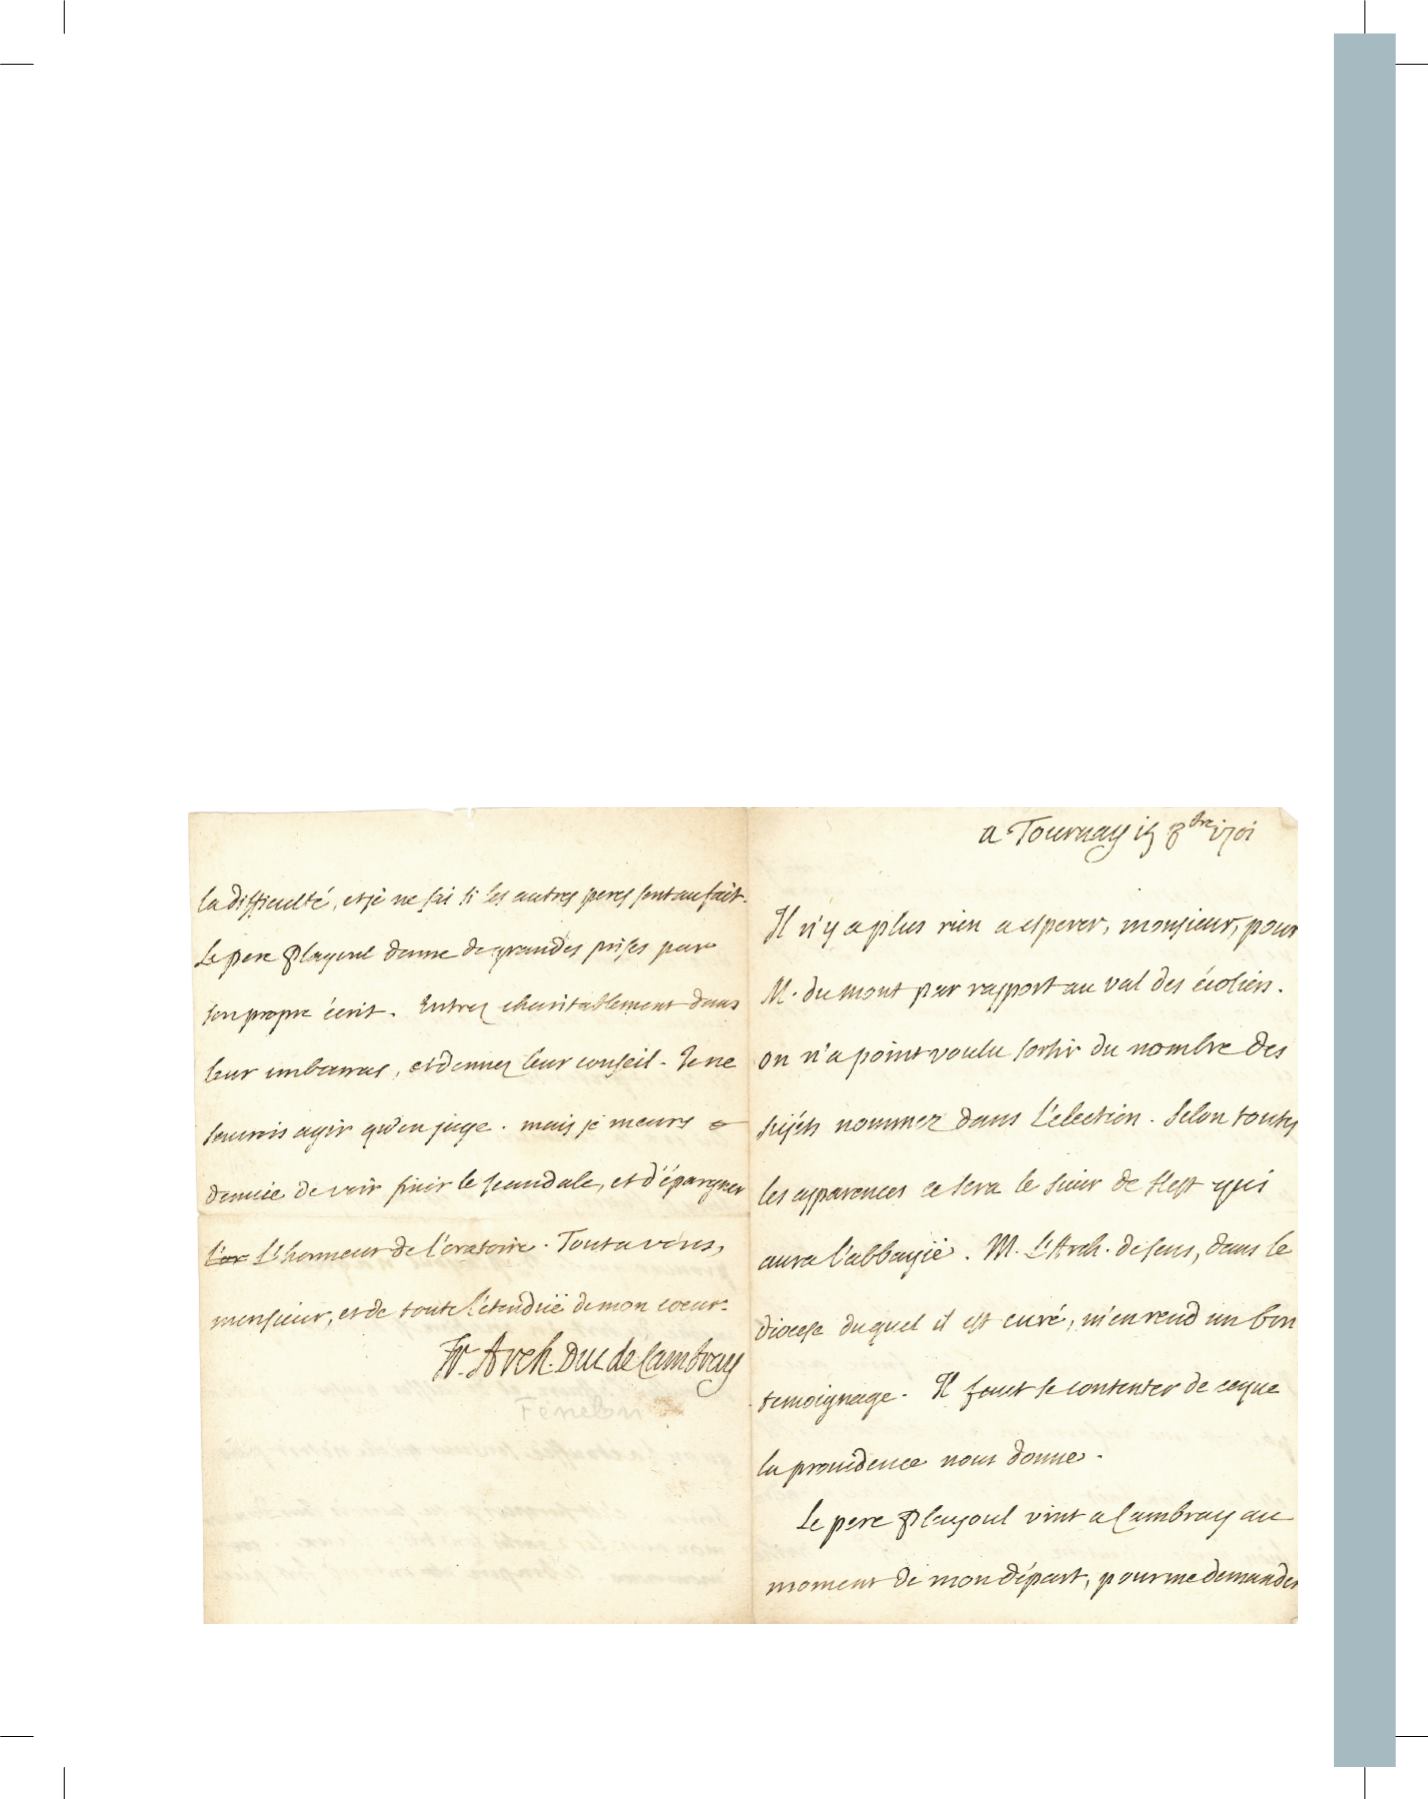 a Tournay 15 8bre 1701
Il n'y a plus rien a esperer, monsieur, pour
M. du mont par rapport au val des écoliers.
on n'a point voulu sortir du nombre des
sujets nommez dans l'election. Selon toutes
les apparences ce sera le sieur de qui
aura l'abbayië. M. l'Arch. de sens, dans le
diocese duquel il est curé, m'en rend un bon
temoignage. Il faut se contenter de ce que
la providence nous donne.
Le pere Playoul vint a Cambray au
moment de mon départ, pour me demander
la difficulté, et je ne sai si les autres peres sont au fait.
Le pere Playoul donne de grandes prises par
son propre écrit. Entrez charitablement dans
leur embarras, et donnez leur conseil. Je ne
saurois agir qu'en juge. mais je meurs
d'envie de voir finir le scandale, et d'épargner
l'honneur de l'oratoire. Tout a vous,
monsieur, et de toute l'étenduë de mon coeur.
Fr. Arch. Duc de Cambray
Fenelon